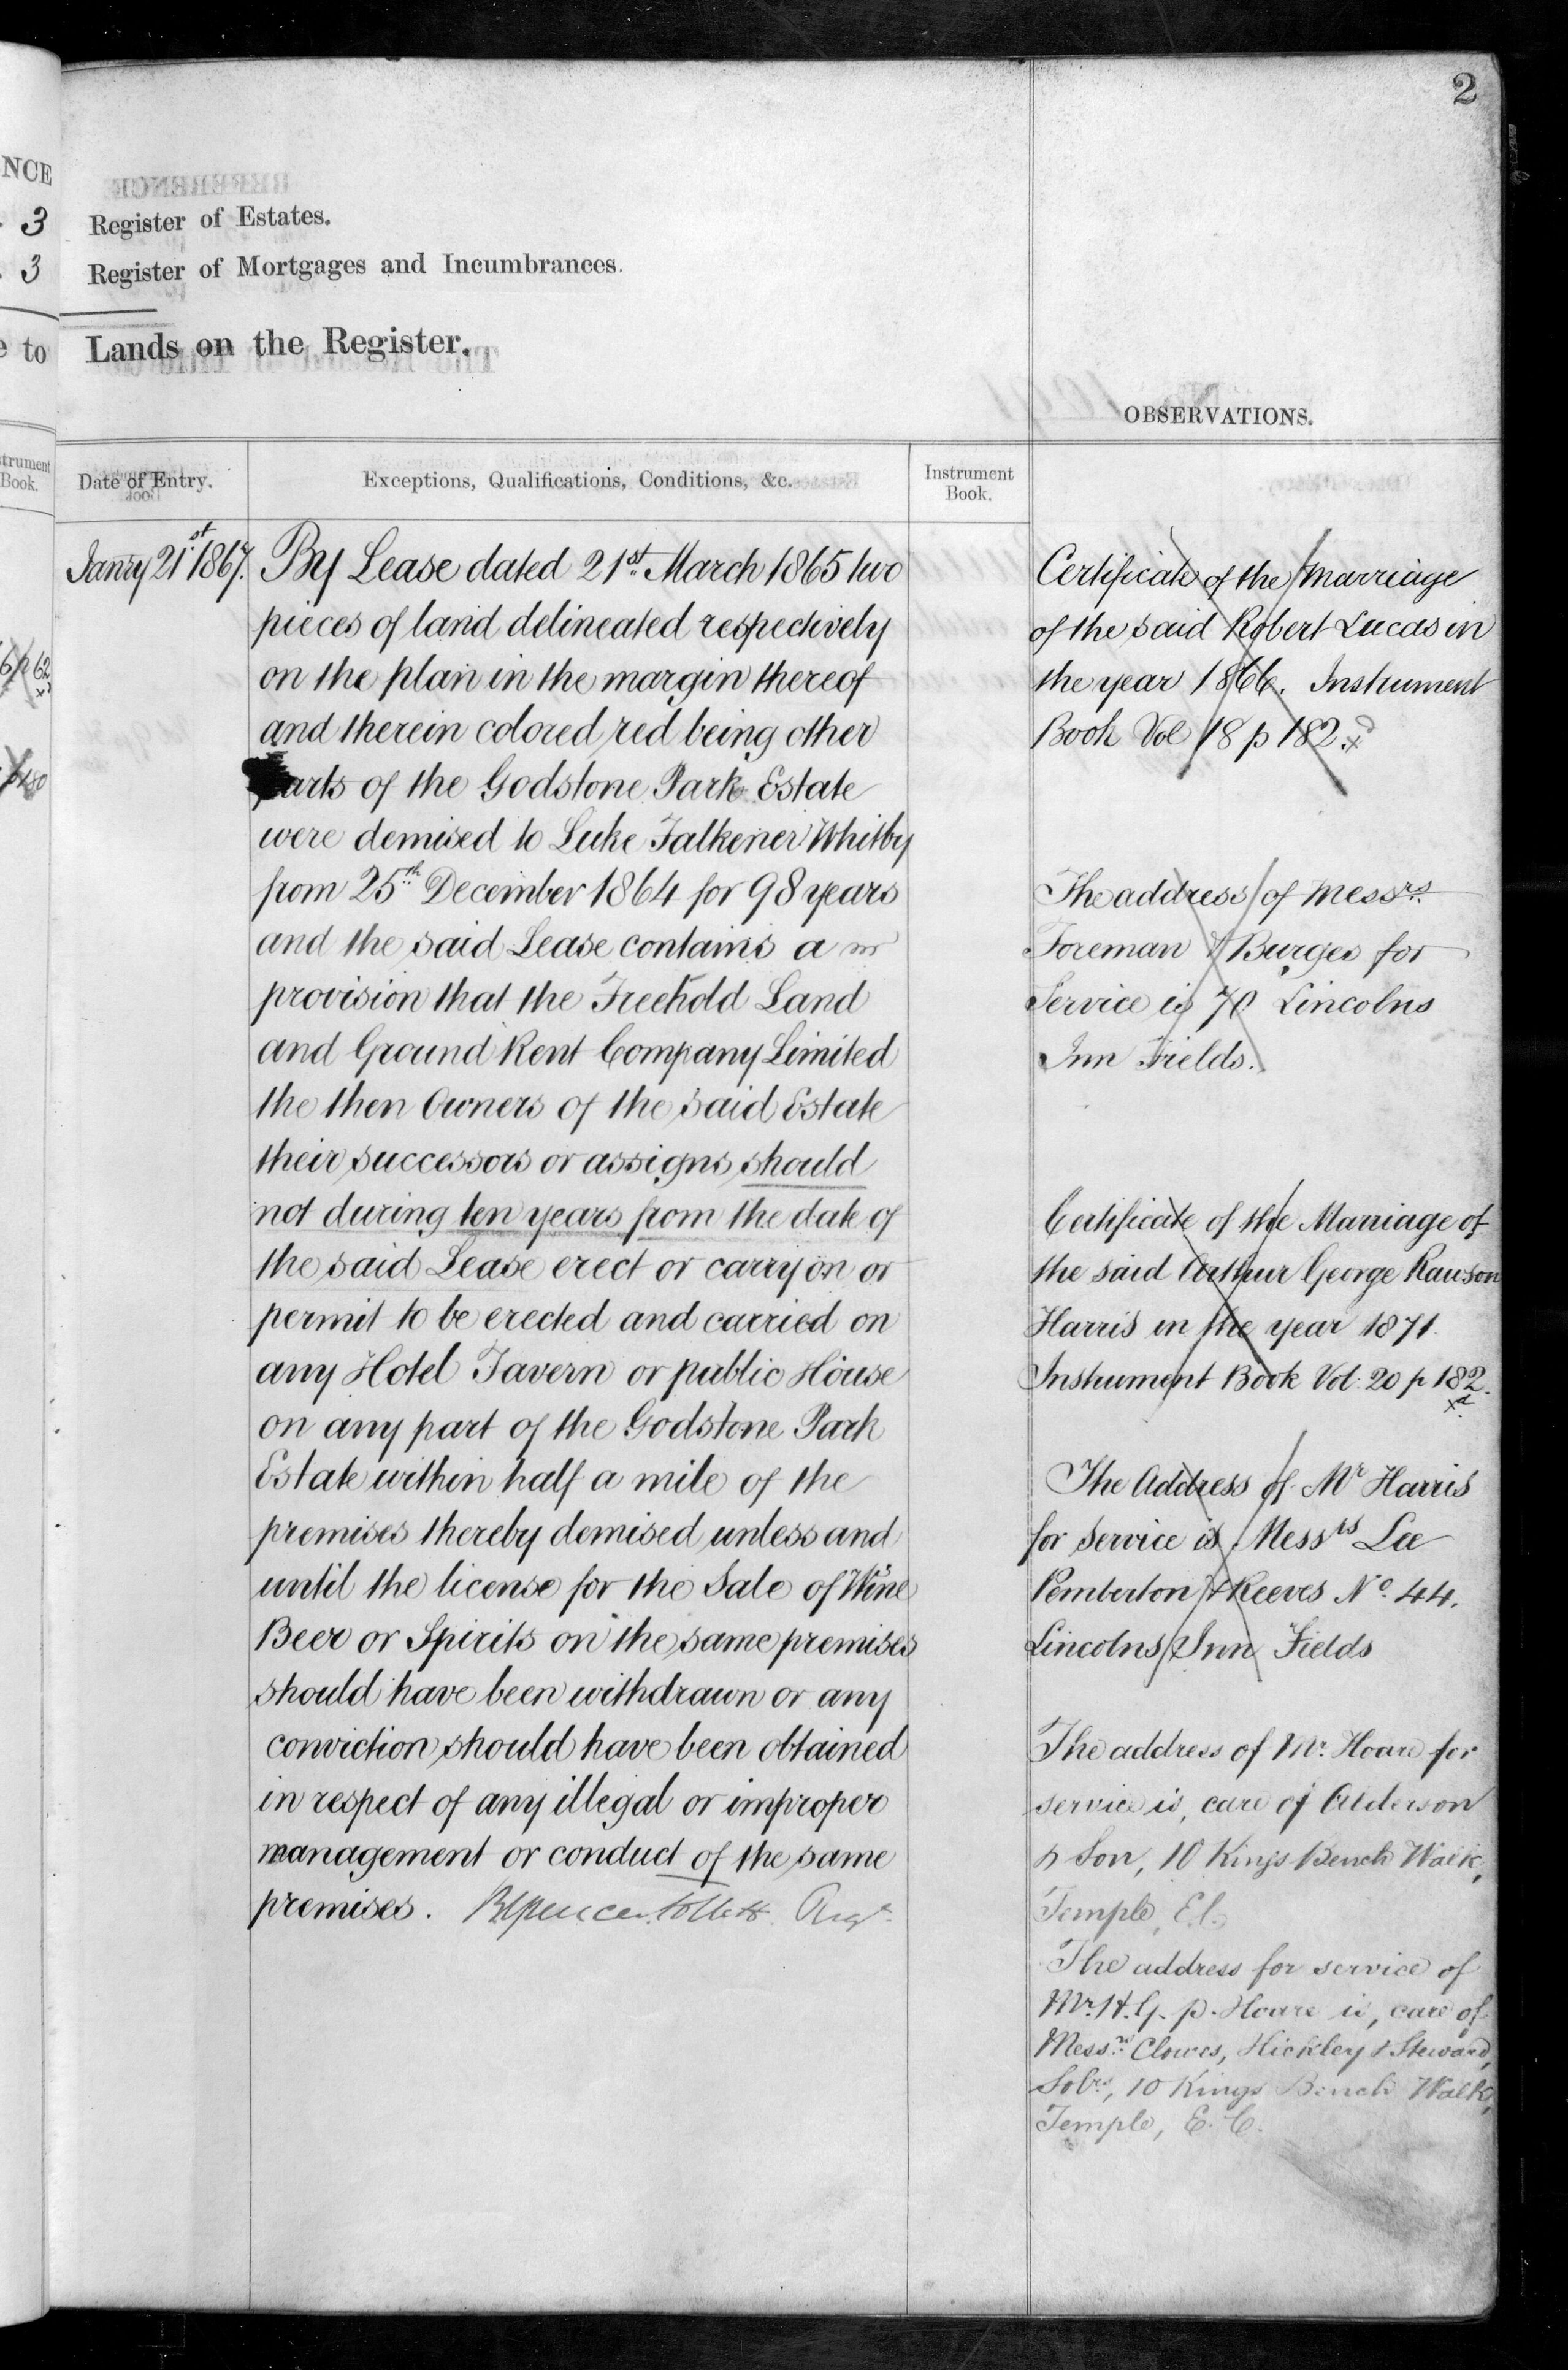 2
NCE
3 Register of Estates.
3 Register of Mortgages and Incumbrances.
e to Lands on the Register.
OBSERVATIONS.
strument Book.
Date of Entry.
Exceptions, Qualifications, Conditions, &c.
Instrument Book.
Janry 21st 1867.
By Lease dated 21st March 1865 two
pieces of land delineated respectively
on the plan in the margin thereof
and therein colored red being other
parts of the Godstone Park Estate
were demised to Luke Falkener Whitby
from 25th December 1864 for 98 years
and the said Lease contains a
provision that the Freehold Land
and Ground Rent Company Limited
the then Owners of the said Estate
their successors or assigns should
not during ten years from the date of
the said Lease erect or carry on or
permit to be erected and carried on
any Hotel Tavern or public House
on any part of the Godstone Park
Estate within half a mile of the
premises thereby demised unless and
until the license for the Sale of Wine
Beer or Spirits on the same premises
should have been withdrawn or any
conviction should have been obtained
in respect of any illegal or improper
management or conduct of the same
premises.
Certificate of the Marriage
of the said Robert Lucas in
the year 1866. Instrument
Book Vol 18 p 182. xd
The address of Messrs.
Foreman & Burges for
Service is 70 Lincolns
Inn Fields.
Certificate of the Marriage of
the said Arthur George Rawson
Harris in the year 1871.
Instrument Book Vol: 20 p 182.
xd
The Address of Mr Harris
for service is Messrs Lee
Pemberton & Reeves No. 44.
Lincolns Inn Fields
The address of Mr. Hoare for
service is, care of Alderson
& Son, 10 Kings Bench Walk,
Temple, E.C.
The address for service of
Mr. H. G. P. Hoare is, care of
Messrs. Clowes, Hickley & Steward,
Solrs, 10 Kings Bench Walk,
Temple, E.C.